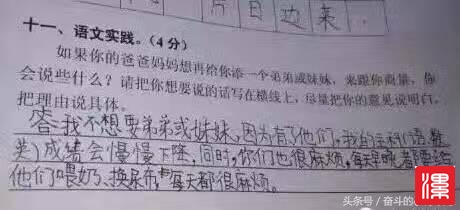 日边来.
十一、语文实践。(4分)
如果你的爸爸妈妈想再给你添一个弟弟或妹妹，来跟你商量，你
会说些什么？请把你想要说的话写在横线上，尽量把你的意见说明白，
把理由说具体。
答:我不想要弟弟或妹妹,因为有了他们,我的主科(语,数,
英)成绩会慢慢下降,同时,你们也很麻烦,每天早晚,都要给
他们喂奶、换尿布,每天都很麻烦。
漯
头条号/奋斗的